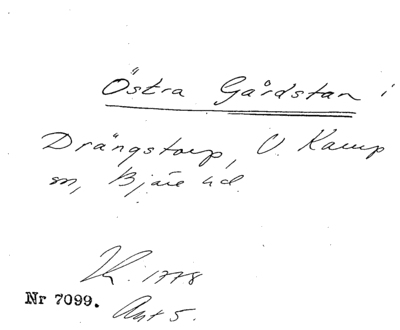 Östra Gårdstan i
Drängstorp, V. Karup
sn, Bjäre hd.
1778
Nr 7099. Akt 5.